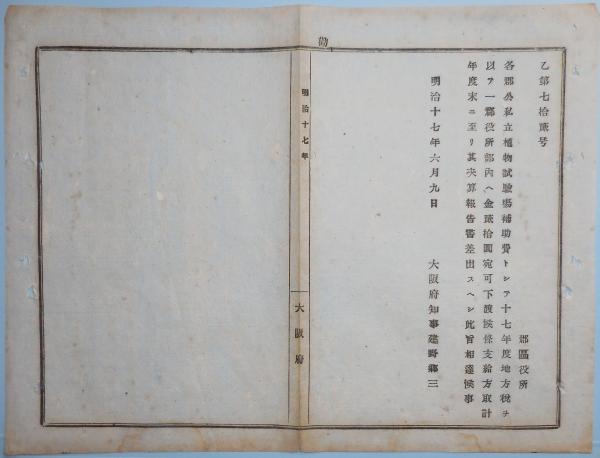 乙第七拾號号
郡區役所
各郡公私立植物試驗場補助費トシテ十七年度地方税ヲ
以テ一郡役所部內ヘ金貳拾圓宛可下渡候條支給方取計
年度末ニ至リ其决算報告書差出スヘシ此旨相達候事
明治十七年六月九日
大阪府知事建野鄉三
勸
明治十七年
大阪府